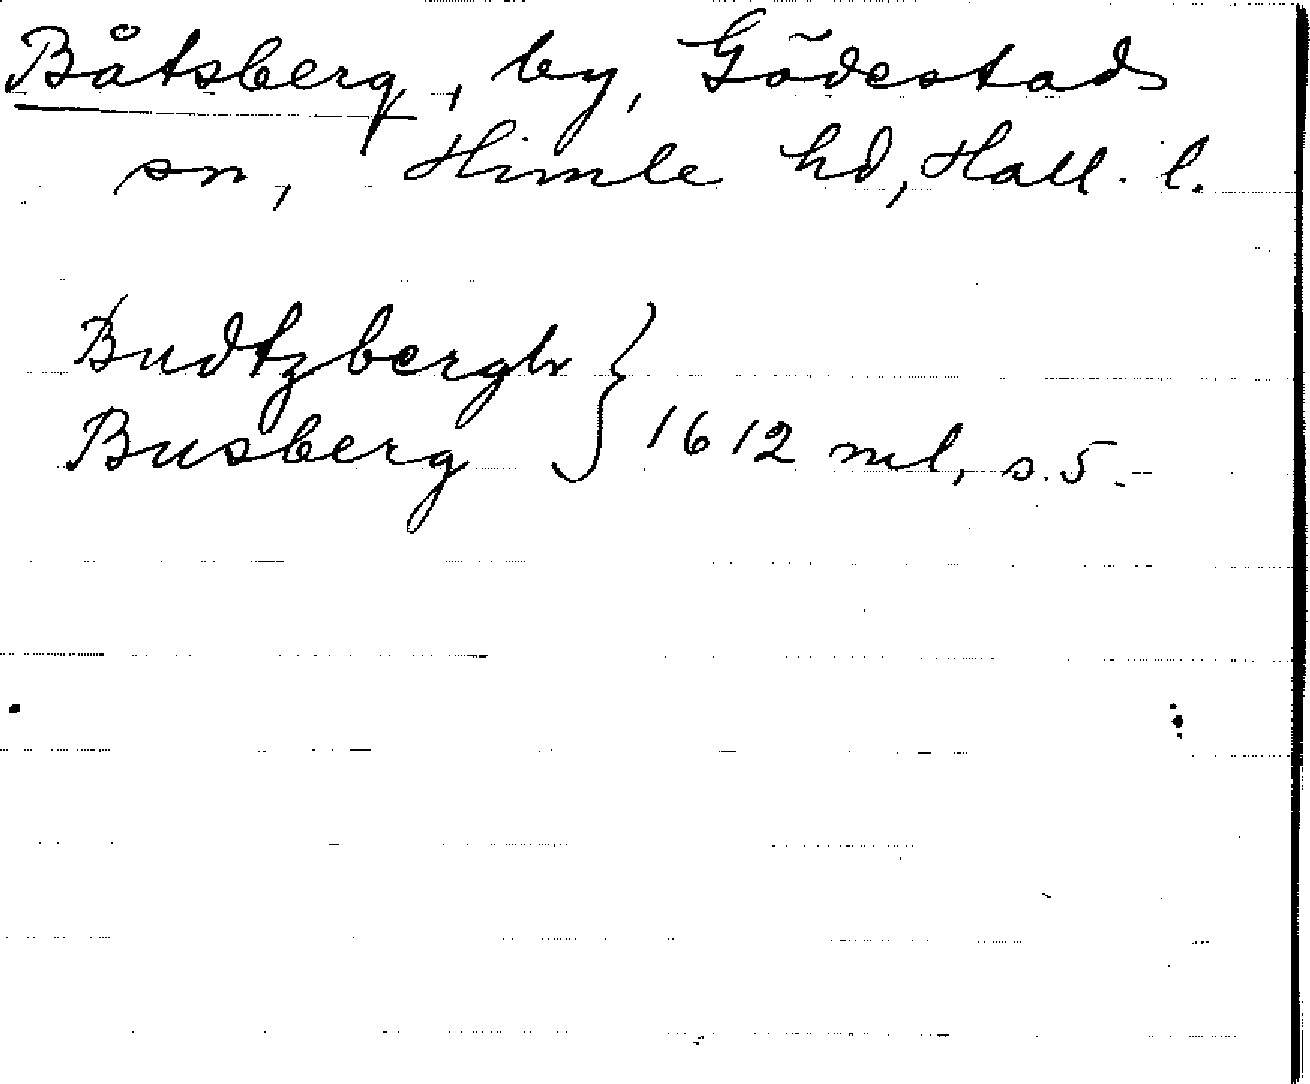 Båtsberg, by, Gödestads
sn, Himle hd, Hall. l.
Budtzbergh
Busberg } 1612 ml, s. 5.